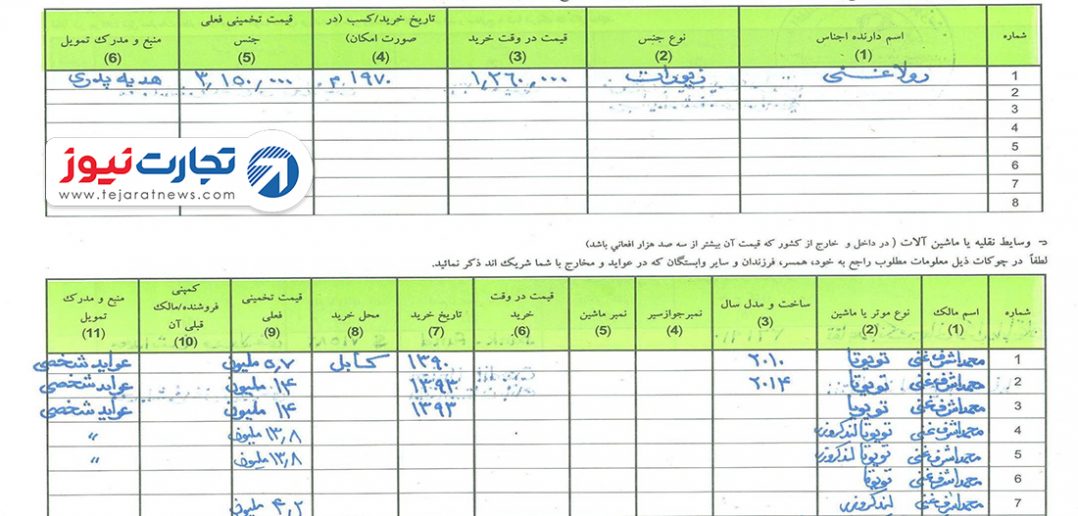 شماره
اسم دارنده اجناس
(1)
نوع جنس
(2)
قیمت در وقت خرید
(3)
تاریخ خرید/کسب (در صورت امکان)
(4)
قیمت تخمینی فعلی جنس
(5)
منبع و مدرک تمویل
(6)
1 رولا غنی زیورات ۱,۲۶۰,۰۰۰ ۱۹۷۰م ۳,۱۵۰,۰۰۰ هدیه پدری
2
3
4
5
6
7
8
تجارت نیوز
www.tejaratnews.com
د- وسایط نقلیه یا ماشین آلات ( در داخل و خارج از کشور که قیمت آن بیشتر از سه صد هزار افغانی باشد)
لطفاً در چوکات ذیل معلومات مطلوب راجع به خود، همسر، فرزندان و سایر وابستگان که در عواید و مخارج با شما شریک اند ذکر نمائید.
شماره
اسم مالک
(1)
نوع موتر یا ماشین
(2)
ساخت و مدل سال
(3)
نمبر جوازسیر
(4)
نمبر ماشین
(5)
قیمت در وقت خرید
(6).
تاریخ خرید
(7)
محل خرید
(8)
قیمت تخمینی فعلی
(9)
کمپنی فروشنده/مالک قبلی آن
(10)
منبع و مدرک تمویل
(11)
1 محمد اشرف غنی تویوتا ۲۰۱۰ ۱۳۹۰ کابل ۵,۷ ملیون عواید شخصی
2 محمد اشرف غنی تویوتا ۲۰۱۴ ۱۳۹۳ ۱۴ ملیون عواید شخصی
3 محمد اشرف غنی تویوتا ۱۳۹۳ ۱۴ ملیون عواید شخصی
4 محمد اشرف غنی تویوتا لندکروزر ۱۳,۸ ملیون "
5 محمد اشرف غنی تویوتا لندکروزر ۱۳,۸ ملیون "
6 محمد اشرف غنی تویوتا
7 محمد اشرف غنی لندکروزر ۴,۲ ملیون